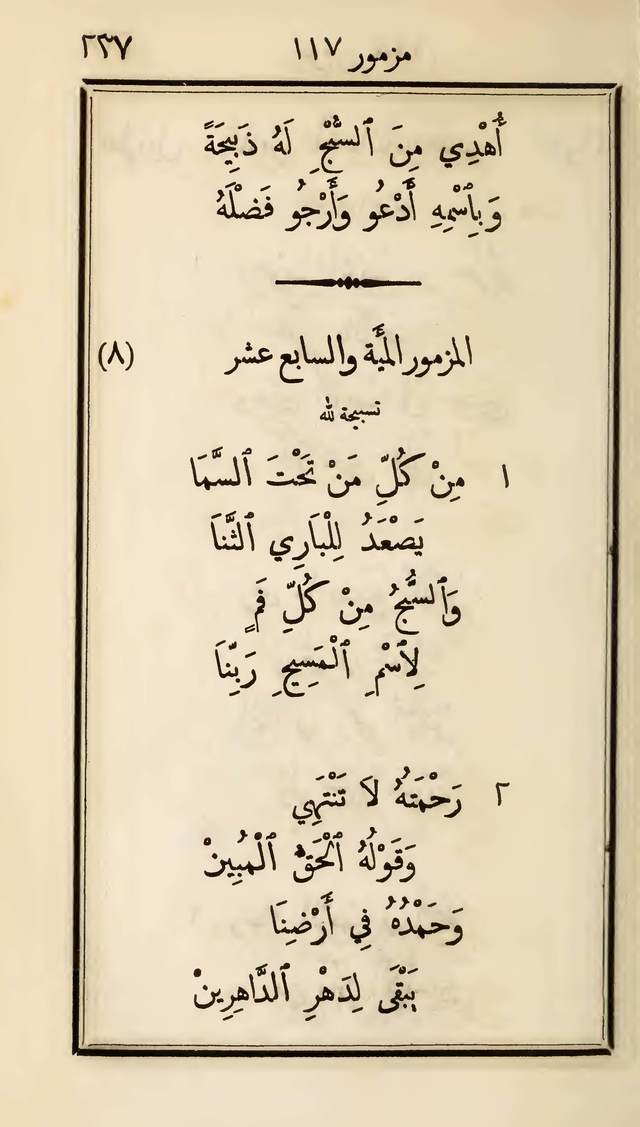 مزمور ١١٧ ٢٣٧
أُهْدِي مِنَ ٱلسُّبْحِ لَهُ ذَبِيحَةً
وَبِٱسْمِهِ أَدْعُو وَأَرْجُو فَضْلَهُ
المزمور المئَة والسابع عشر (٨)
تسبيحة لله
١ مِنْ كُلِّ مَنْ تَحْتَ ٱلسَّمَا
يَصْعَدُ لِلْبَارِي ٱلثَّنَا
وَٱلسُّبْحُ مِنْ كُلِّ فَمٍ
لِٱسْمِ ٱلْمَسِيحِ رَبِّنَا
٢ رَحْمَتُهُ لاَ تَنْتَهِي
وَقَوْلُهُ ٱلْحَقُّ ٱلْمُبِينْ
وَحَمْدُهُ فِي أَرْضِنَا
يَبْقَى لِدَهْرِ ٱلدَّاهِرِينْ